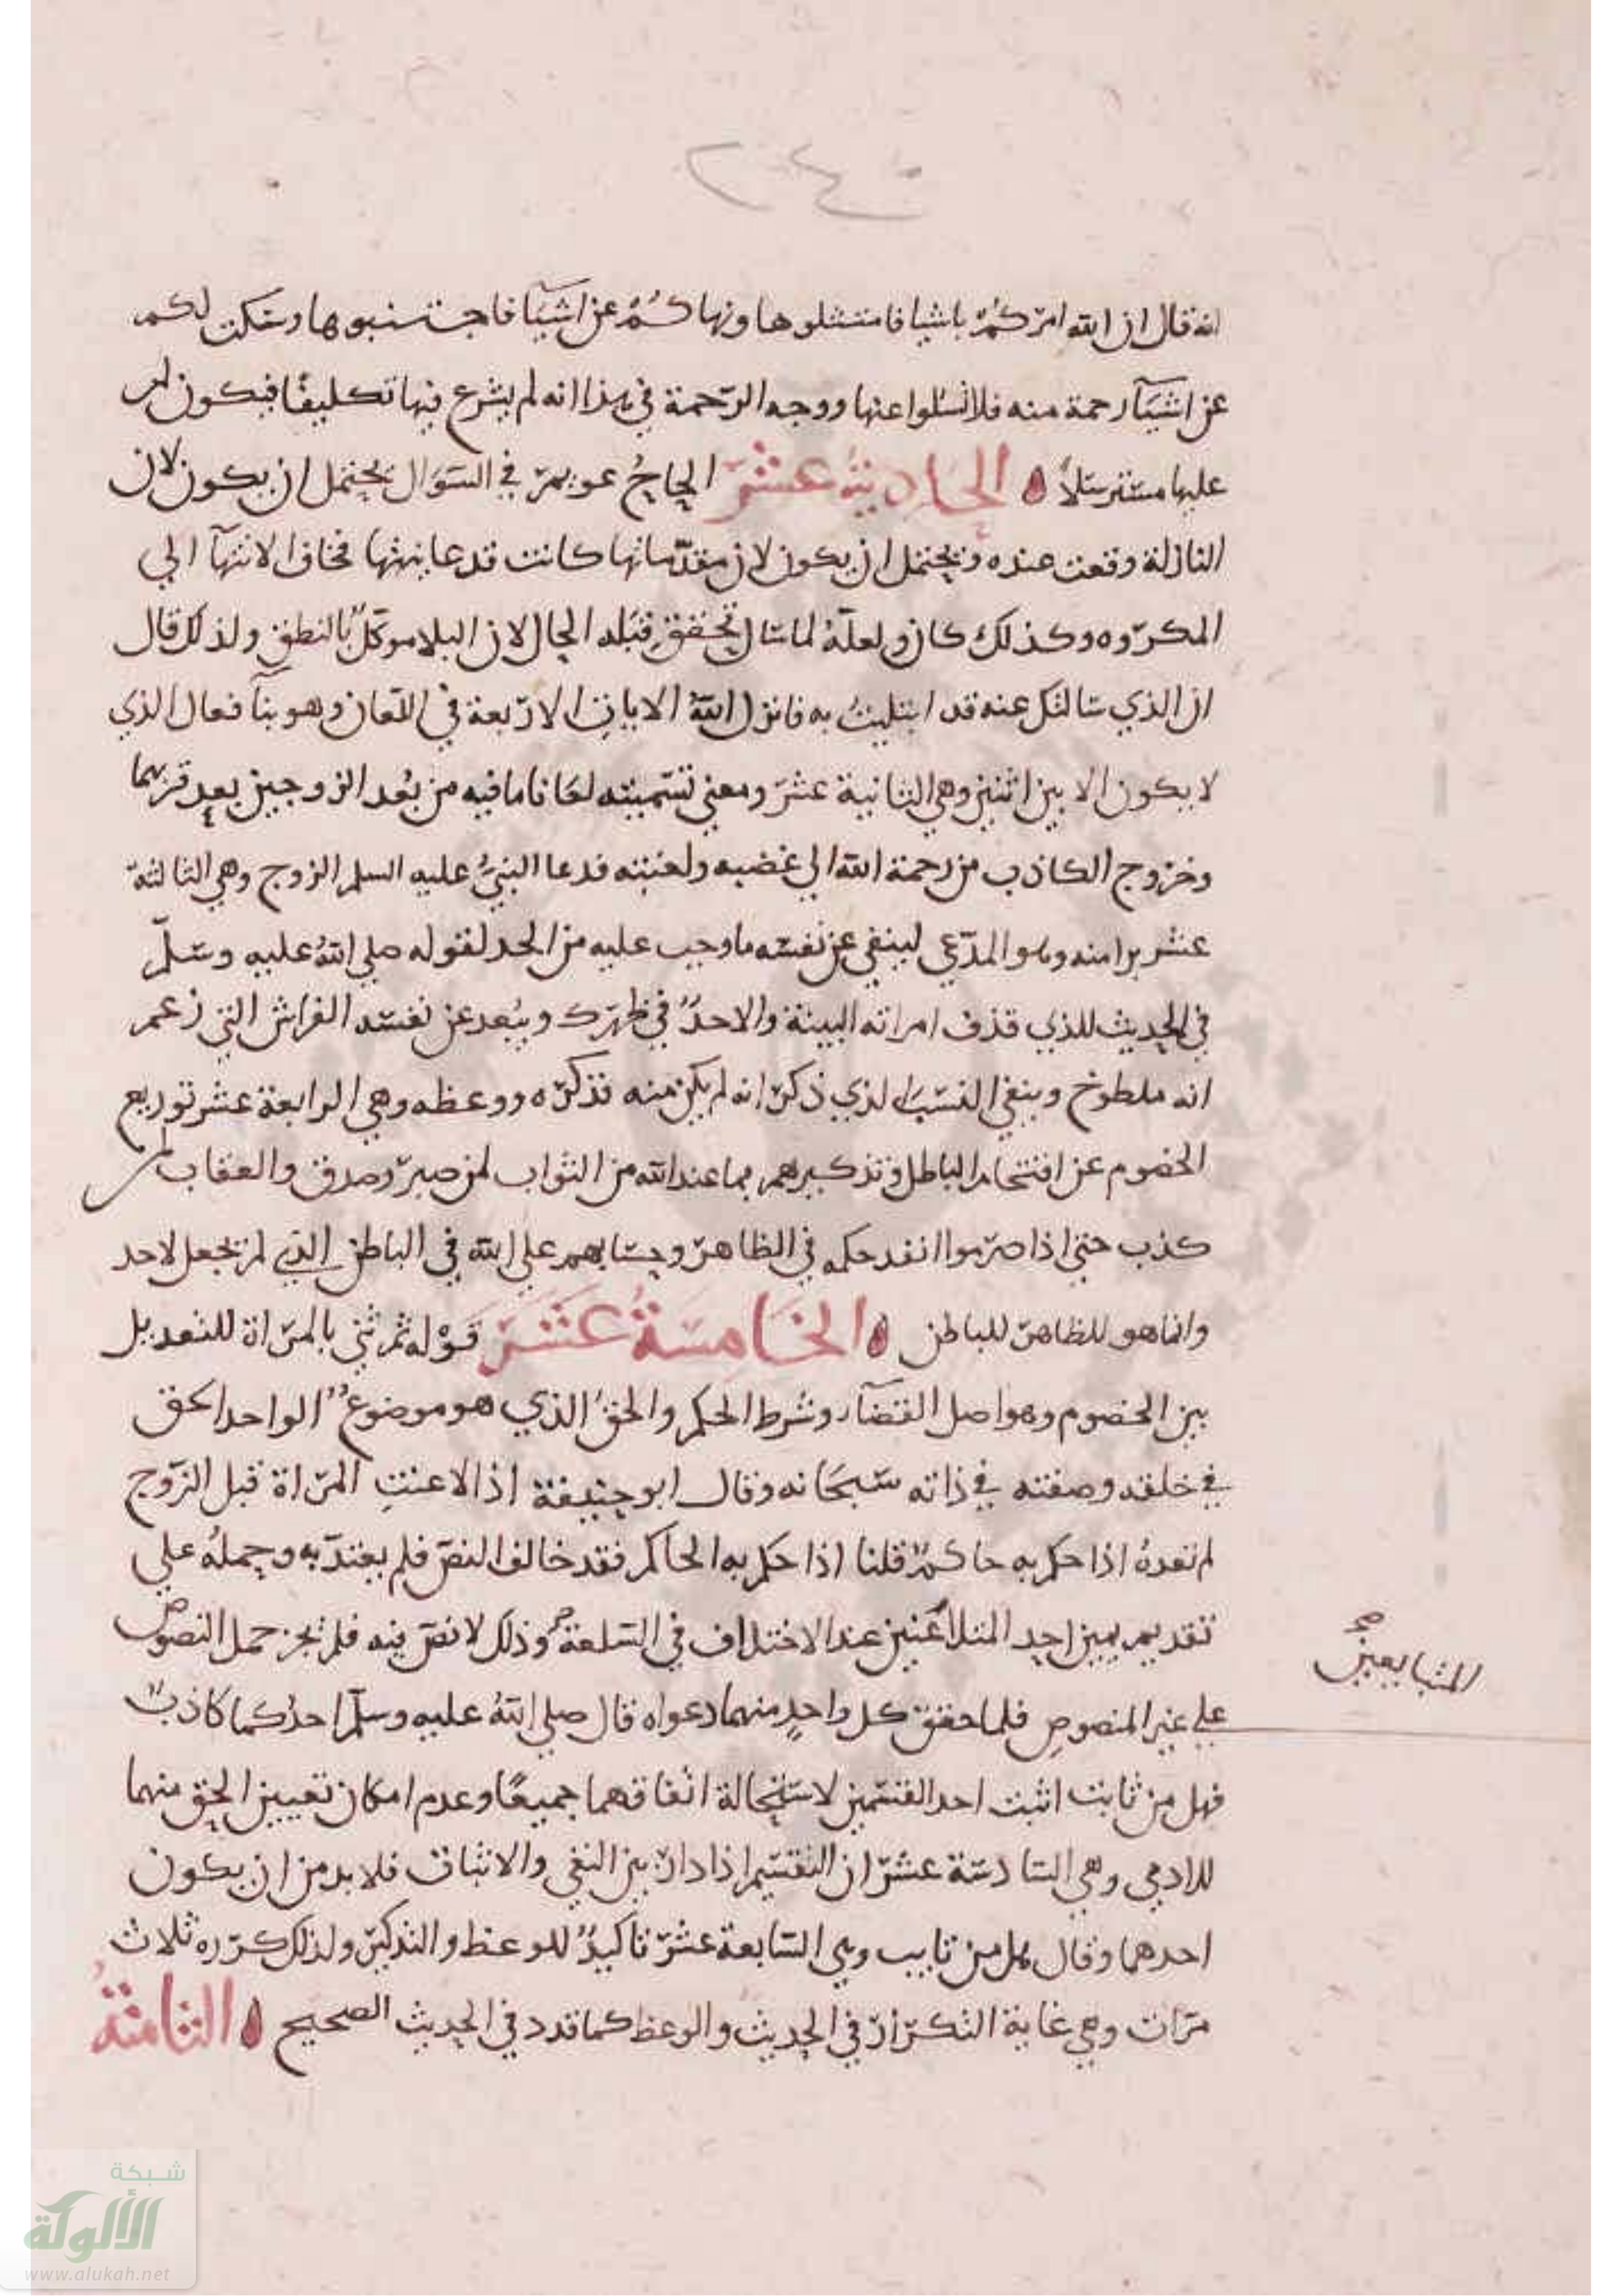 ٢٠٤
انه قال ان الله امركم باشيا فامتثلوها ونهاكم عن اشيآ فاجتنبوها وسكت لكم
عن اشيآ رحمة منه فلا تسئلوا عنها ووجه الرحمة في هذا انه لم يشرع فيها تكليفا فيكون لمر
عليها مسترسلا ه الحادية عشر الحاح عويمر في السوال يحتمل ان يكون لان
النازلة وقعت عنده ويحتمل ان يكون لان مقدماتها كانت قد عاينها فخاف الانتهآ الي
المكروه وكذلك كان ولعله لما سال تحقق قبله الحال لان البلا موكل بالنطق ولذلك قال
ان الذي سالتك عنه قد ابتليت به فانزل الله الايات الاربعة في اللعان وهو بنآ فعال الذي
لا يكون الا بين اثنين وهي الثانية عشر ومعني تسميته لعانا ما فيه من بعد الزوجين بعد قربهما
وخروج الكاذب من رحمة الله الي غضبه ولعنته فدعا النبي عليه السلم الزوج وهي الثالثة
عشر برا منه وهو المدعي لينفي عن نفسه ما وجب عليه من الحد لقوله صلي الله عليه وسلم
في الحديث للذي قذف امراته البينة والا حد في ظهرك ويبعد عن نفسه الفراش التي زعم
انه ملطوخ وينفي النسب الذي ذكر انه لم يكن منه فذكره ووعظه وهي الرابعة عشر توريع
الخصوم عن اقتحام الباطل وتذكيرهم بما عند الله من الثواب لمن صبر وصدق والعقاب لمن
كذب حتي اذا صرموا انفد حكمه في الظاهر وحسابهم علي الله في الباطن الذي لم يجعل لاحد
وانما هو للظاهر للباطن ه الخامسة عشر قوله ثم ثني بالمراة للتعديل
بين الخصوم وهو اصل القضآ وشرط الحكم والحق الذي هو موضوع الواحد الحق
في خلقه وصفته في ذاته سبحانه وقال ابو حنيفة اذا لاعنت المراة قبل الزوج
لم نعده اذا حكم به حاكم قلنا اذا حكم به الحاكم فقد خالف النص فلم يعتد به وحمله علي
تقديم يمين احد المتلاعنين عند الاختلاف في السلعة وذلك لا نص فيه فلم يجز حمل النصوص
المتبايعين صح
علي غير المنصوص فلما حقق كل واحد منهما دعواه قال صلي الله عليه وسلم احدكما كاذب
فهل من ثابت اثبت احد القسمين لاستحالة اتفاقهما جميعا وعدم امكان تعيين الحق منهما
للادمي وهي السادسة عشر ان التقسيم اذا دار بين النفي والاثبات فلا بد من ان يكون
احدهما وقال هل من تايب وهي السابعة عشر تاكيد للوعظ والتذكير ولذلك كرره ثلاث
مرات وهي غاية التكرار في الحديث والوعظ كما قدد في الحديث الصحيح ه الثامنة
شبكة
الألوكة
www.alukah.net